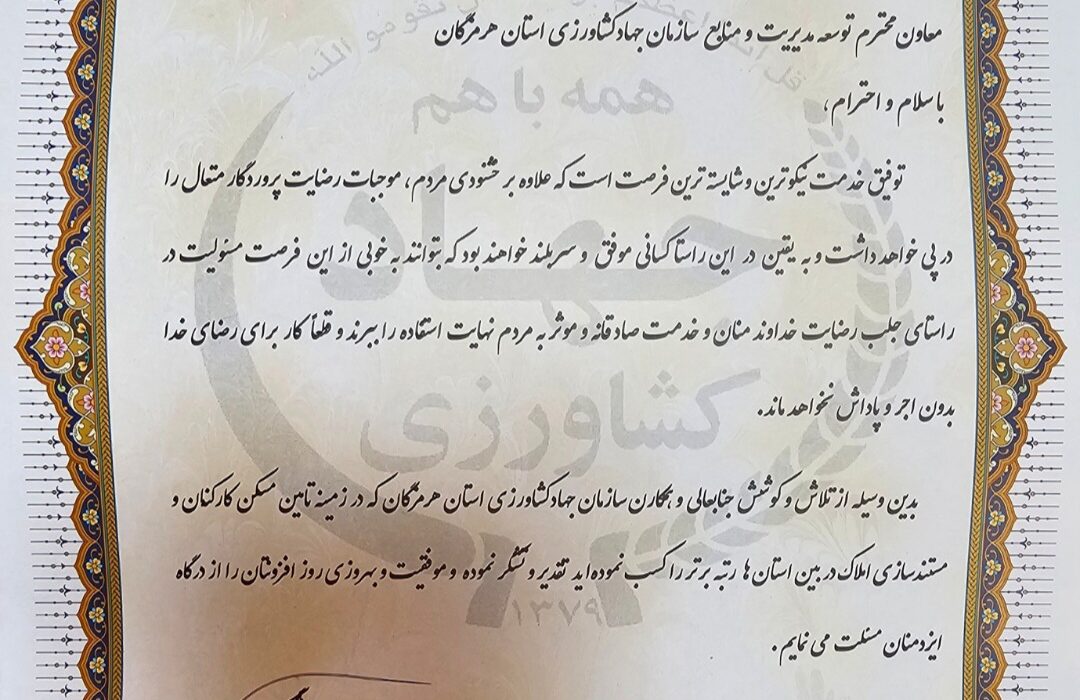 معاون محترم توسعه مدیریت و منابع سازمان جهاد کشاورزی استان هرمزگان
با سلام و احترام ،
توفیق خدمت نیکوترین و شایسته ترین فرصت است که علاوه بر خشنودی مردم ، موجبات رضایت پروردگار متعال را
در پی خواهد داشت و به یقین در این راستا کسانی موفق و سربلند خواهند بود که بتوانند به خوبی از این فرصت مسئولیت در
راستای جلب رضایت خداوند منان و خدمت صادقانه و موثر به مردم نهایت استفاده را ببرند و قطعاً کار برای رضای خدا
بدون اجر و پاداش نخواهد ماند.
بدین وسیله از تلاش و کوشش جنابعالی و همکارن سازمان جهاد کشاورزی استان هرمزگان که در زمینه تامین مسکن کارکنان و
مستندسازی املاک در بین استان ها رتبه برتر را کسب نموده اید تقدیر و تشکر نموده و موفقیت و بهروزی روز افزونتان را از درگاه
ایزد منان مسئلت می نمایم .
همه با هم
جهاد
کشاورزی
۱۳۷۹